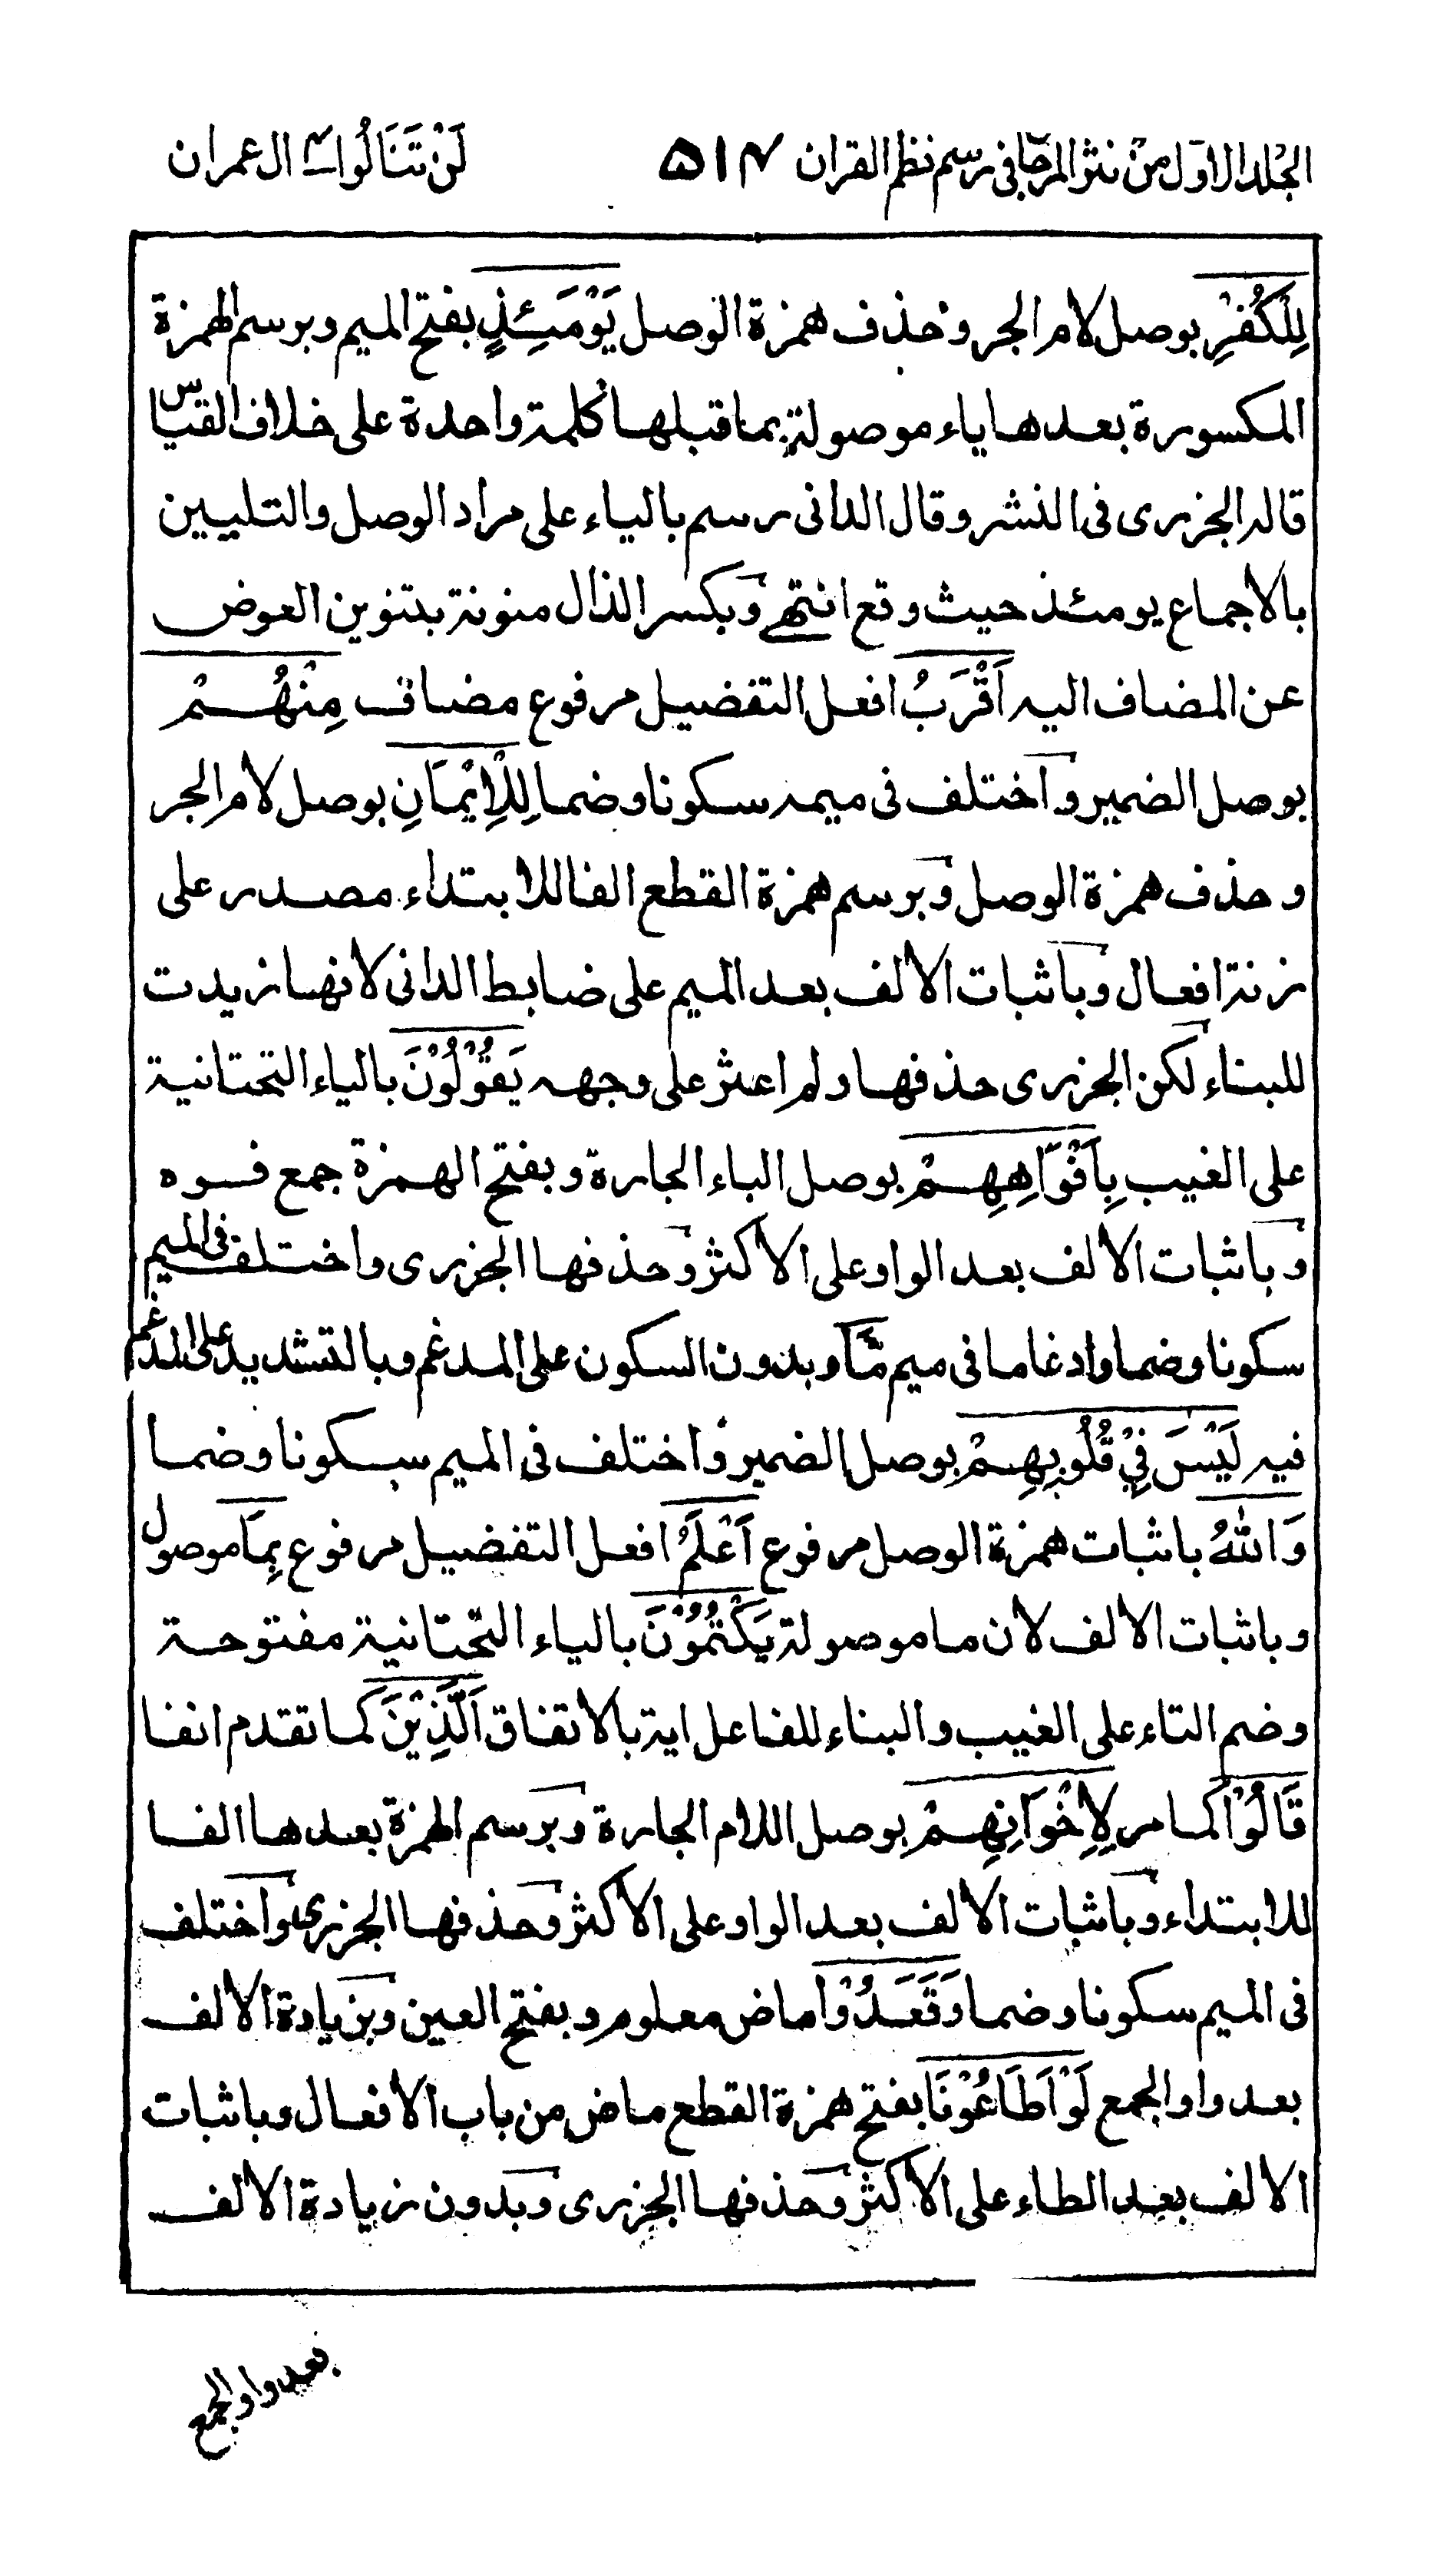 الجلد الاول من نثر المرجان في رسم نظم القران ٥١٤ لَنْ تَنَالُوا ٤ ال عمران
لِلْكُفْرِ بوصل لام الجر وحذف همزة الوصل يَوْمَئِذٍ بفتح الميم وبرسم الهمزة
المكسورة بعدها ياء موصولة بما قبلها كلمة واحدة على خلاف القياس
قاله الجزري في النشر وقال الداني رسم بالياء على مراد الوصل والتليين
بالاجماع يومئذ حيث وقع انتهى وبكسر الذال منونة بتنوين العوض
عن المضاف اليه اَقْرَبُ افعل التفضيل مرفوع مضاف مِنْهُمْ
بوصل الضمير واختلف في ميمه سكونا وضما لِلْاِيْمَانِ بوصل لام الجر
وحذف همزة الوصل وبرسم همزة القطع الفا للابتداء مصدر على
زنة افعال وباثبات الالف بعد الميم على ضابط الداني لانها زيدت
للبناء لكن الجزري حذفها ولم اعثر على وجهه يَقُوْلُوْنَ بالياء التحتانية
على الغيب بِاَفْوَاهِهِمْ بوصل الباء الجارة وبفتح الهمزة جمع فوه
وباثبات الالف بعد الواو على الاكثر وحذفها الجزري واختلف في الميم
سكونا وضما وادغاما في ميم مَّا وبدون السكون على المدغم وبالتشديد على المدغم
فيه لَيْسَ فِيْ قُلُوْبِهِمْ بوصل الضمير واختلف في الميم سكونا وضما
وَاللهُ باثبات همزة الوصل مرفوع اَعْلَمُ افعل التفضيل مرفوع بِمَا موصول
وباثبات الالف لان ما موصولة يَكْتُمُوْنَ بالياء التحتانية مفتوحة
وضم التاء على الغيب والبناء للفاعل اية بالاتفاق اَلَّذِيْنَ كما تقدم انفا
قَالُوْا كما مر لِاِخْوَانِهِمْ بوصل اللام الجارة وبرسم الهمزة بعدها الفا
للابتداء وباثبات الالف بعد الواو على الاكثر وحذفها الجزري واختلف
في الميم سكونا وضما وَقَعَدُوْا ماض معلوم وبفتح العين وبزيادة الالف
بعد واو الجمع لَوْ اَطَاعُوْنَا بفتح همزة القطع ماض من باب الافعال وباثبات
الالف بعد الطاء على الاكثر وحذفها الجزري وبدون زيادة الالف
بعد واو الجمع